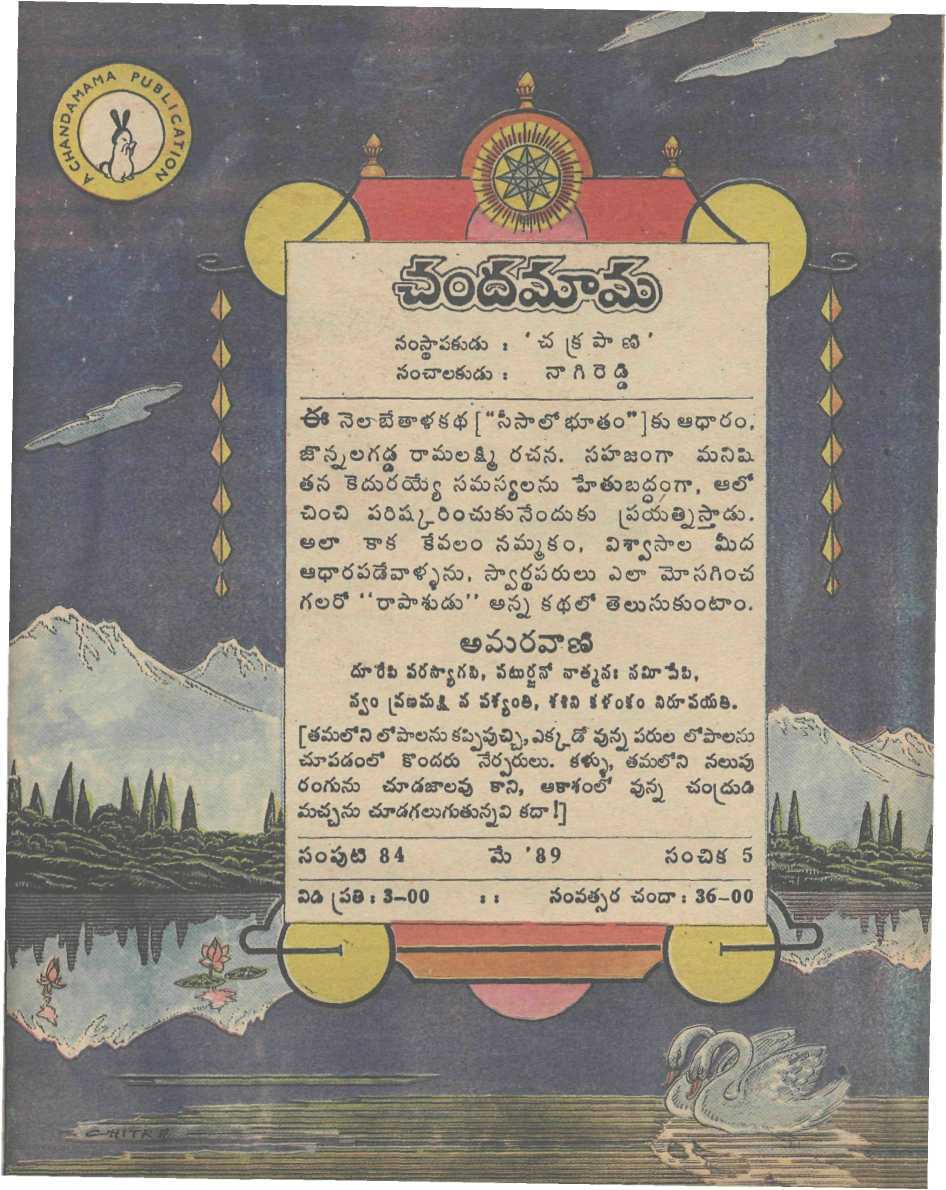 A CHANDAMAMA PUBLICATION
చందమామ
సంస్థాపకుడు : ' చ క్ర పా ణి '
సంచాలకుడు : నా గి రె డ్డి
ఈ నెల బేతాళకథ ["సీసాలో భూతం"]కు ఆధారం,
జొన్నలగడ్డ రామలక్ష్మి రచన. సహజంగా మనిషి
తన కెదురయ్యే సమస్యలను హేతుబద్ధంగా, ఆలో
చించి పరిష్కరించుకునేందుకు ప్రయత్నిస్తాడు.
అలా కాక కేవలం నమ్మకం, విశ్వాసాల మీద
ఆధారపడేవాళ్ళను, స్వార్థపరులు ఎలా మోసగించ
గలరో "రాపాశుడు" అన్న కథలో తెలుసుకుంటాం.
అమరవాణి
దూరేపి పరస్యాగసి, పటుర్జనో నాత్మనః సమీపేపి,
స్వం వ్రణమక్షి న పశ్యంతి, శశిని కళంకం నిరూపయతి.
[తమలోని లోపాలను కప్పివుచ్చి, ఎక్కడో వున్న పరుల లోపాలను
చూపడంలో కొందరు నేర్పరులు. కళ్ళు, తమలోని నలుపు
రంగును చూడజాలవు కాని, ఆకాశంలో వున్న చంద్రుడి
మచ్చను చూడగలుగుతున్నవి కదా!]
సంపుటి 84 మే '89 సంచిక 5
విడి ప్రతి : 3-00 :: సంవత్సర చందా : 36-00
CHITRA